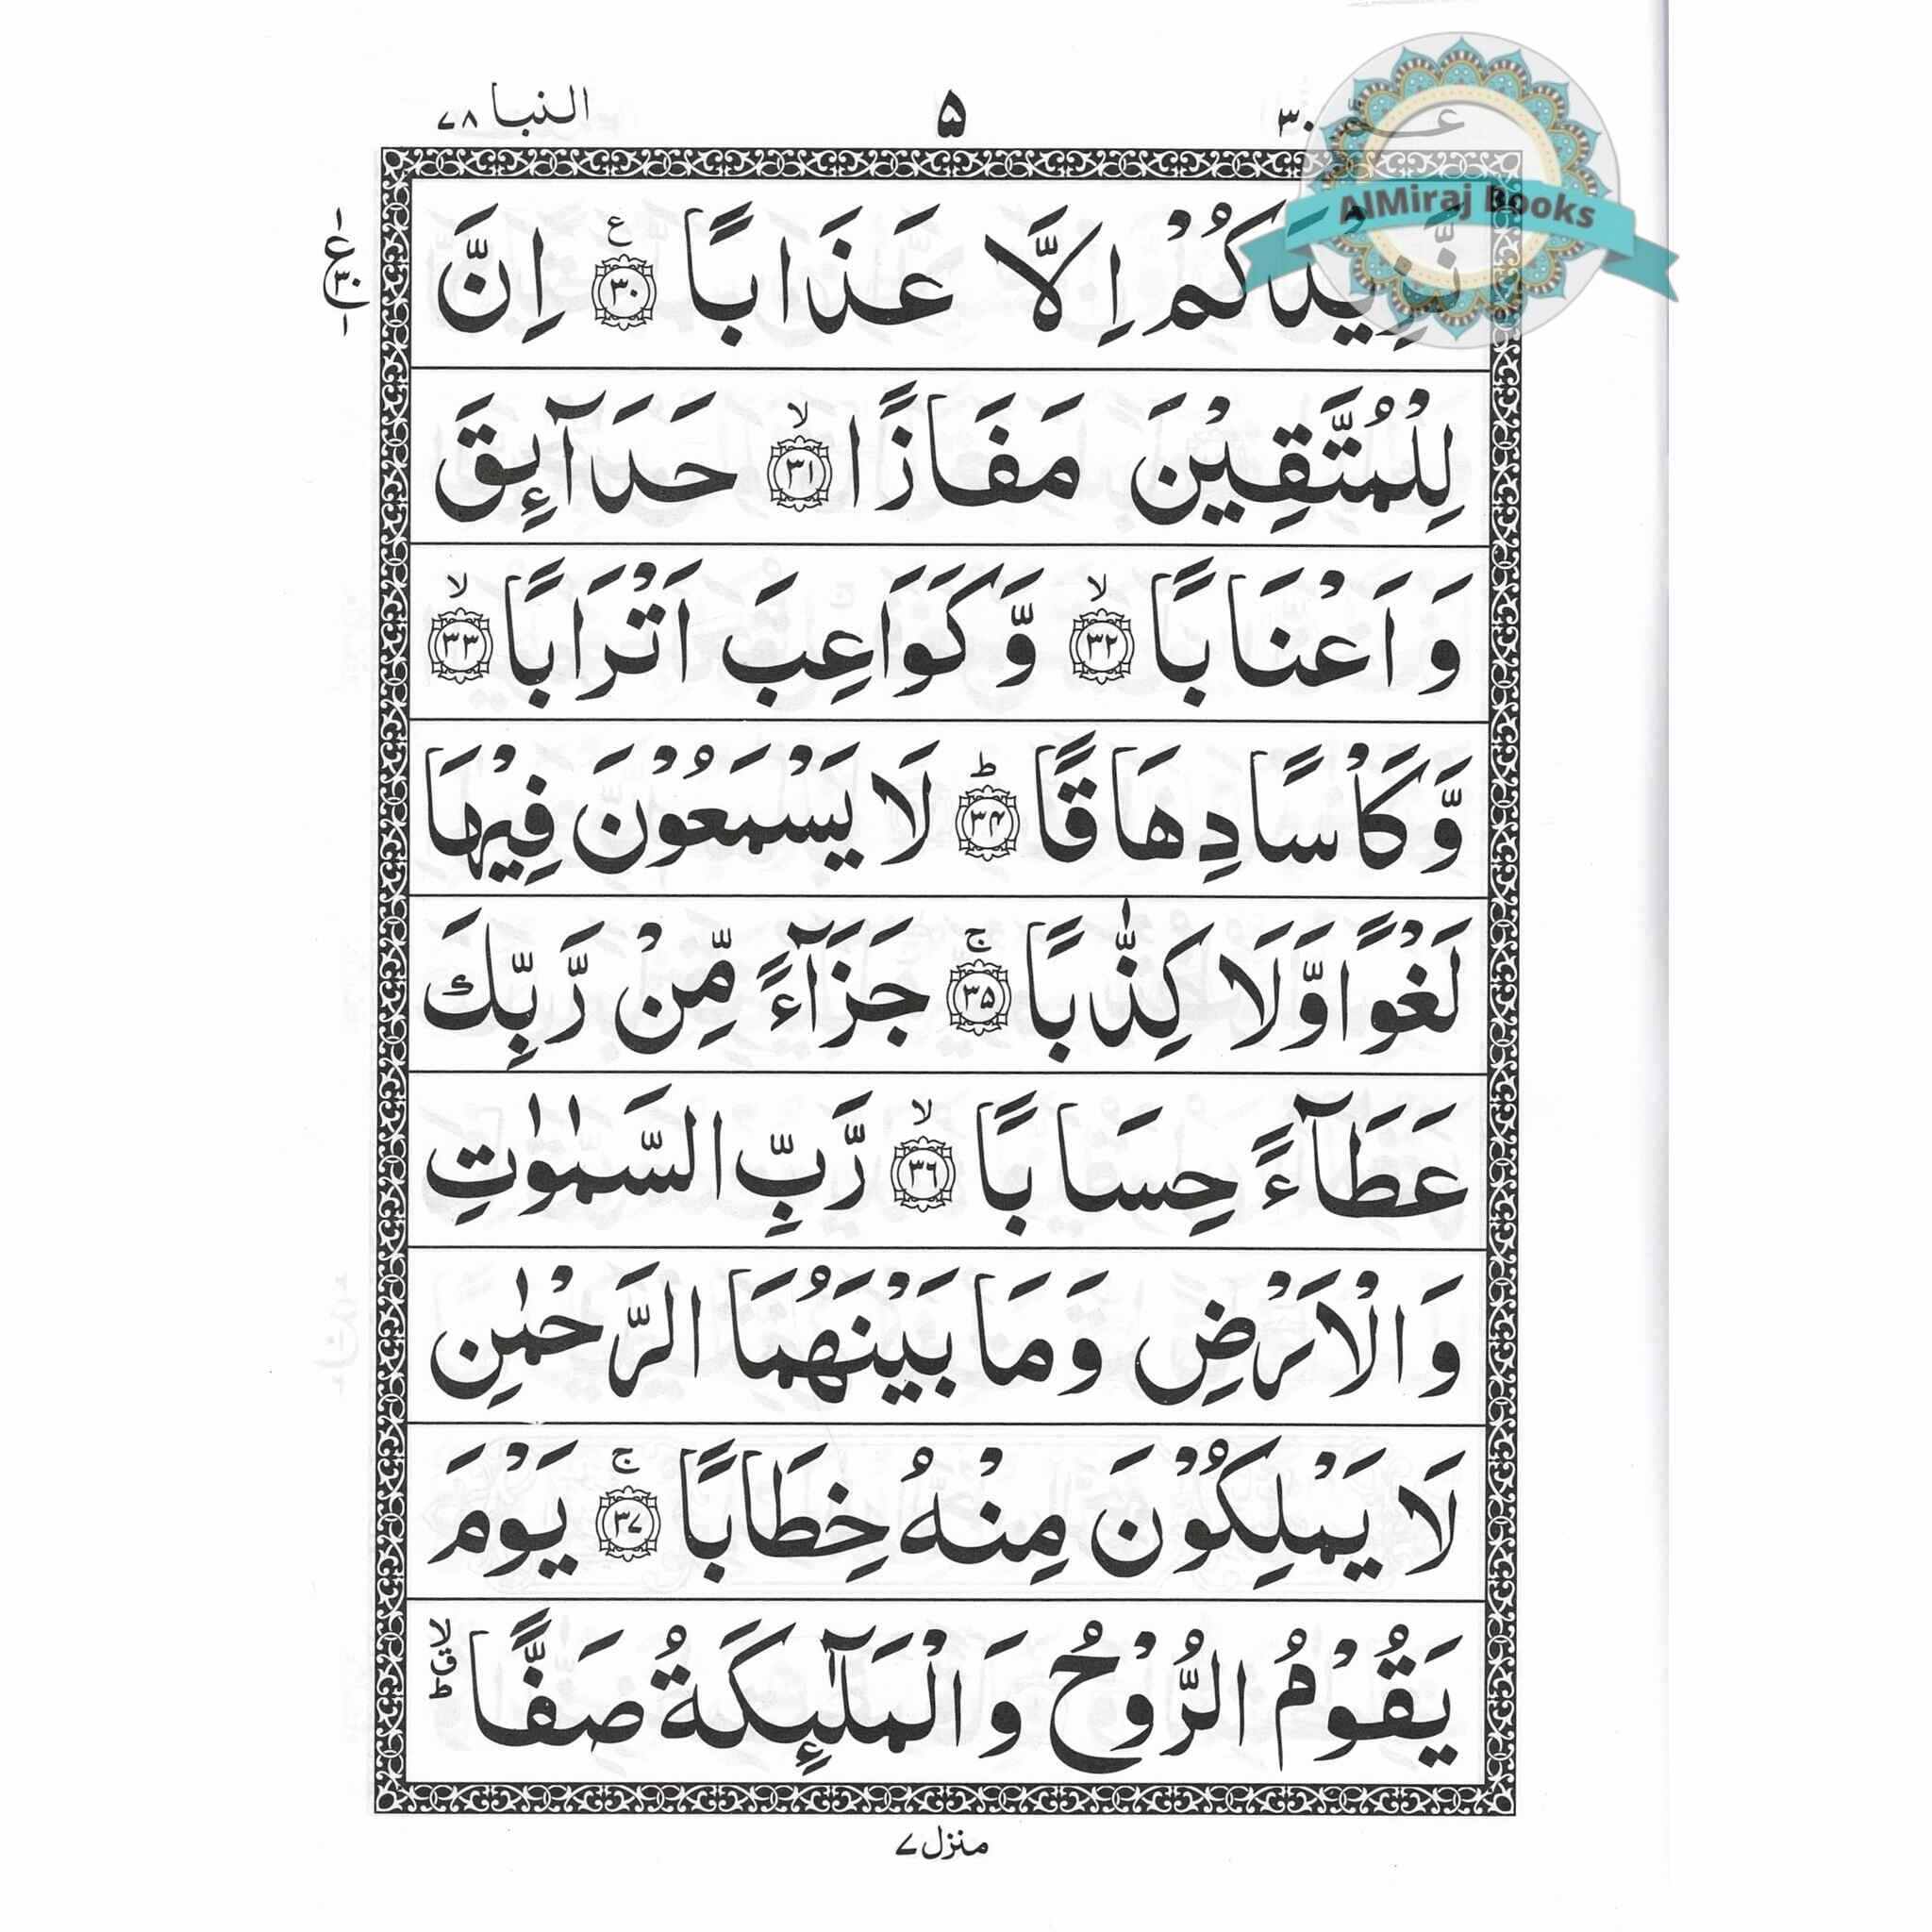 عـم ٣٠
۵
النبا ٧٨
AlMiraj Books
نَّزِيْدَكُمْ اِلَّا عَذَابًا ۝٣٠ ع اِنَّ
ا ع ٣٠ ا
لِلْمُتَّقِيْنَ مَفَازًا ۝٣١ ۙ حَدَآئِقَ
وَ اَعْنَابًا ۝٣٢ ۙ وَّكَوَاعِبَ اَتْرَابًا ۝٣٣ ۙ
وَّكَاْسًا دِهَاقًا ۝٣۴ ؕ لَا يَسْمَعُوْنَ فِيْهَا
لَغْوًا وَّلَا كِذّٰبًا ۝٣۵ ۚ جَزَآءً مِّنْ رَّبِّكَ
عَطَآءً حِسَابًا ۝٣٦ ۙ رَّبِّ السَّمٰوٰتِ
وَالْاَرْضِ وَمَا بَيْنَهُمَا الرَّحْمٰنِ
لَا يَمْلِكُوْنَ مِنْهُ خِطَابًا ۝٣٧ ۚ يَوْمَ
يَقُوْمُ الرُّوْحُ وَالْمَلٰٓئِكَةُ صَفًّا لا ق ط
منزل ٧